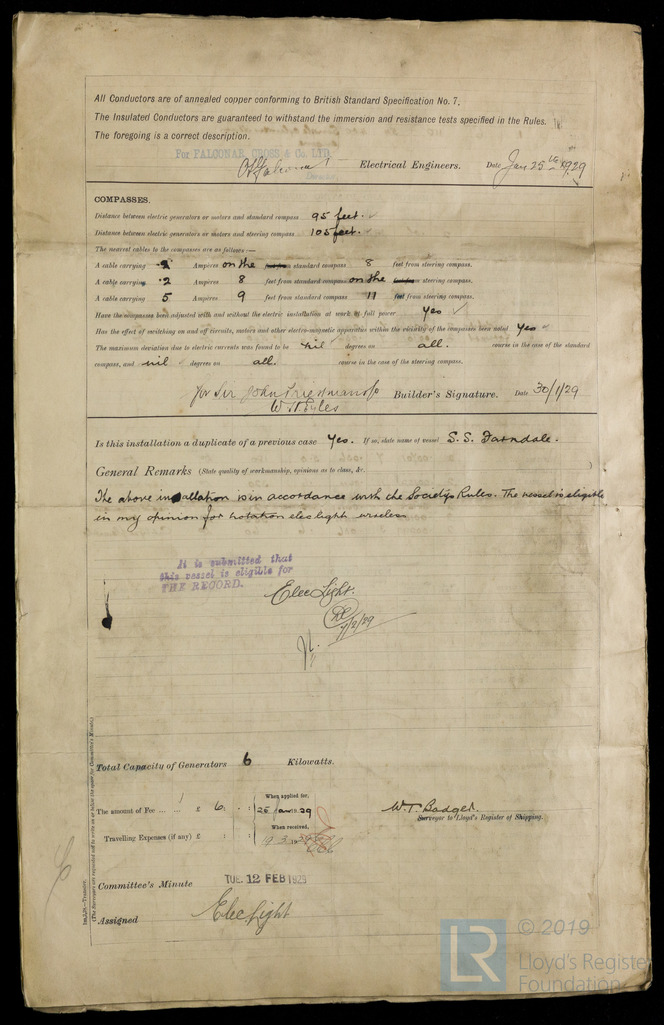 All Conductors are of annealed copper conforming to British Standard Specification No. 7.
The Insulated Conductors are guaranteed to withstand the immersion and resistance tests specified in the Rules.
The foregoing is a correct description.
For FALCONAR, CROSS & Co. LTD.
Electrical Engineers. Date Jan 25th 1929
Director
COMPASSES.
Distance between electric generators or motors and standard compass 95 feet.
Distance between electric generators or motors and steering compass 105 feet.
The nearest cables to the compasses are as follows:—
A cable carrying Amperes on the standard compass 8 feet from steering compass.
A cable carrying .2 Amperes 8 feet from standard compass on the steering compass.
A cable carrying 5 Amperes 9 feet from standard compass 11 feet from steering compass.
Have the compasses been adjusted with and without the electric installation at work at full power Yes
Has the effect of switching on and off circuits, motors and other electro-magnetic apparatus within the vicinity of the compasses been noted Yes
The maximum deviation due to electric currents was found to be nil degrees on all. course in the case of the standard
compass, and nil degrees on all. course in the case of the steering compass.
for Sir John Builder's Signature. Date 30/1/29
Is this installation a duplicate of a previous case Yes. If so, state name of vessel S.S. Farndale.
General Remarks (State quality of workmanship, opinions as to class, &c.
The above installation is in accordance with the Society's Rules. The vessel is eligible
in my opinion for notation elec light wireless
It is submitted that
this vessel is eligible for
THE RECORD.
Elec Light.
7/2/29
Total Capacity of Generators 6 Kilowatts.
When applied for,
The amount of Fee ... ... £ 6 : : 25 Jan 1929
When received,
Travelling Expenses (if any) £ : :
W.T. Badger.
Surveyor to Lloyd's Register of Shipping.
Committee's Minute TUE. 12 FEB 1929
Assigned Elec Light
(The Surveyors are requested not to write on or below the space for Committee's Minute.)
© 2019
LR
Lloyd's Register
Foundation